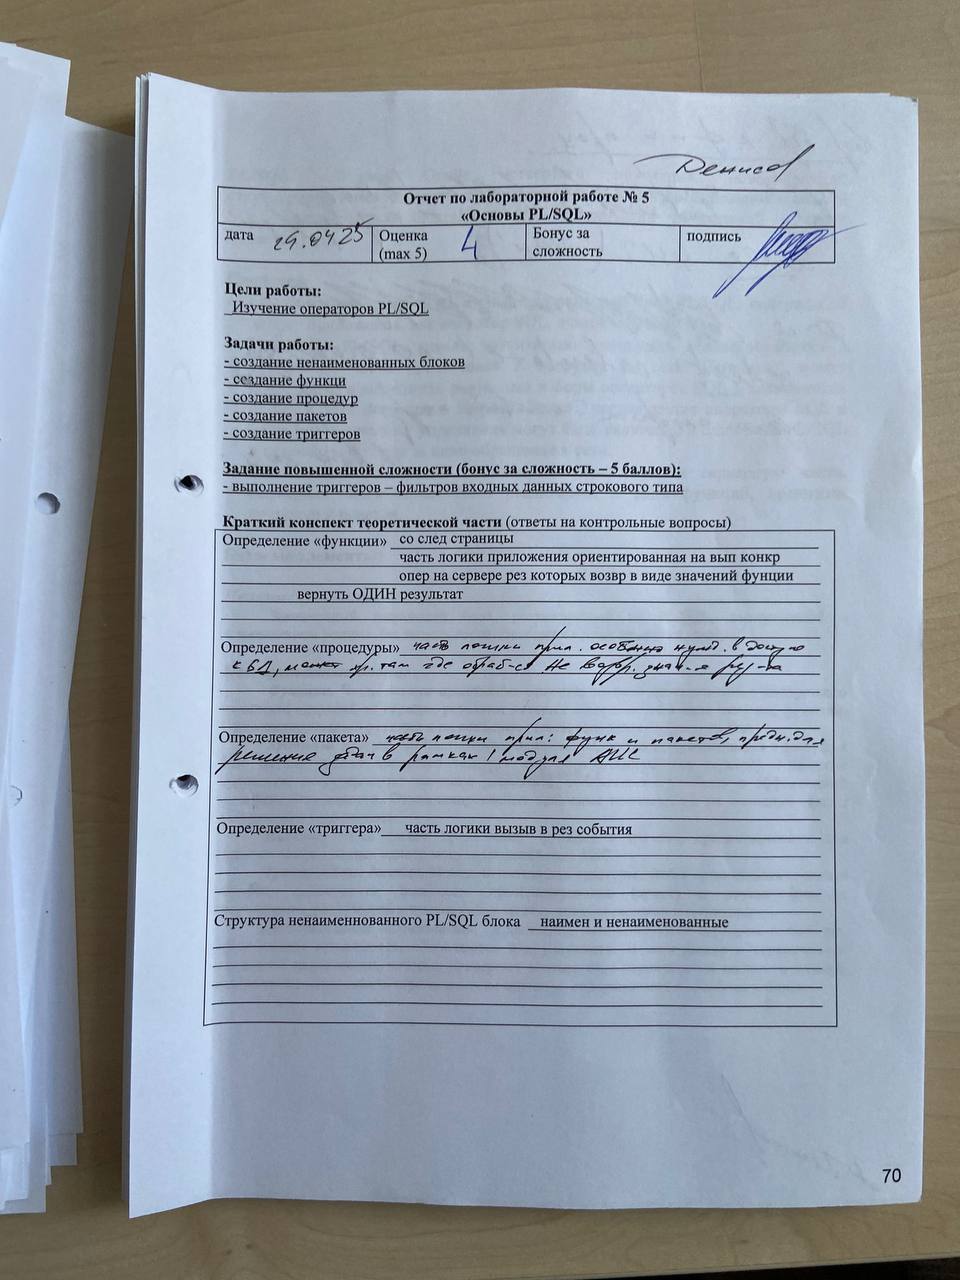 Денисов
Отчет по лабораторной работе № 5
«Основы PL/SQL»
дата 29.0425 Оценка (max 5) 4 Бонус за сложность подпись
Цели работы:
Изучение операторов PL/SQL
Задачи работы:
- создание ненаименованных блоков
- создание функци
- создание процедур
- создание пакетов
- создание триггеров
Задание повышенной сложности (бонус за сложность – 5 баллов):
- выполнение триггеров – фильтров входных данных строкового типа
Краткий конспект теоретической части (ответы на контрольные вопросы)
Определение «функции» со след страницы
часть логики приложения ориентированная на вып конкр
опер на сервере рез которых возвр в виде значений фунции
вернуть ОДИН результат
Определение «процедуры» часть логики прил. особенно нужд. в доступ
к БД, может пр. там где обраб-ка не возвр. знач-я
Определение «пакета» часть логики прил: функ и пакетов, предн. для
решения задач в рамках 1 модуля АИС
Определение «триггера» часть логики вызыв в рез события
Структура ненаименнованного PL/SQL блока наимен и ненаименованные
70